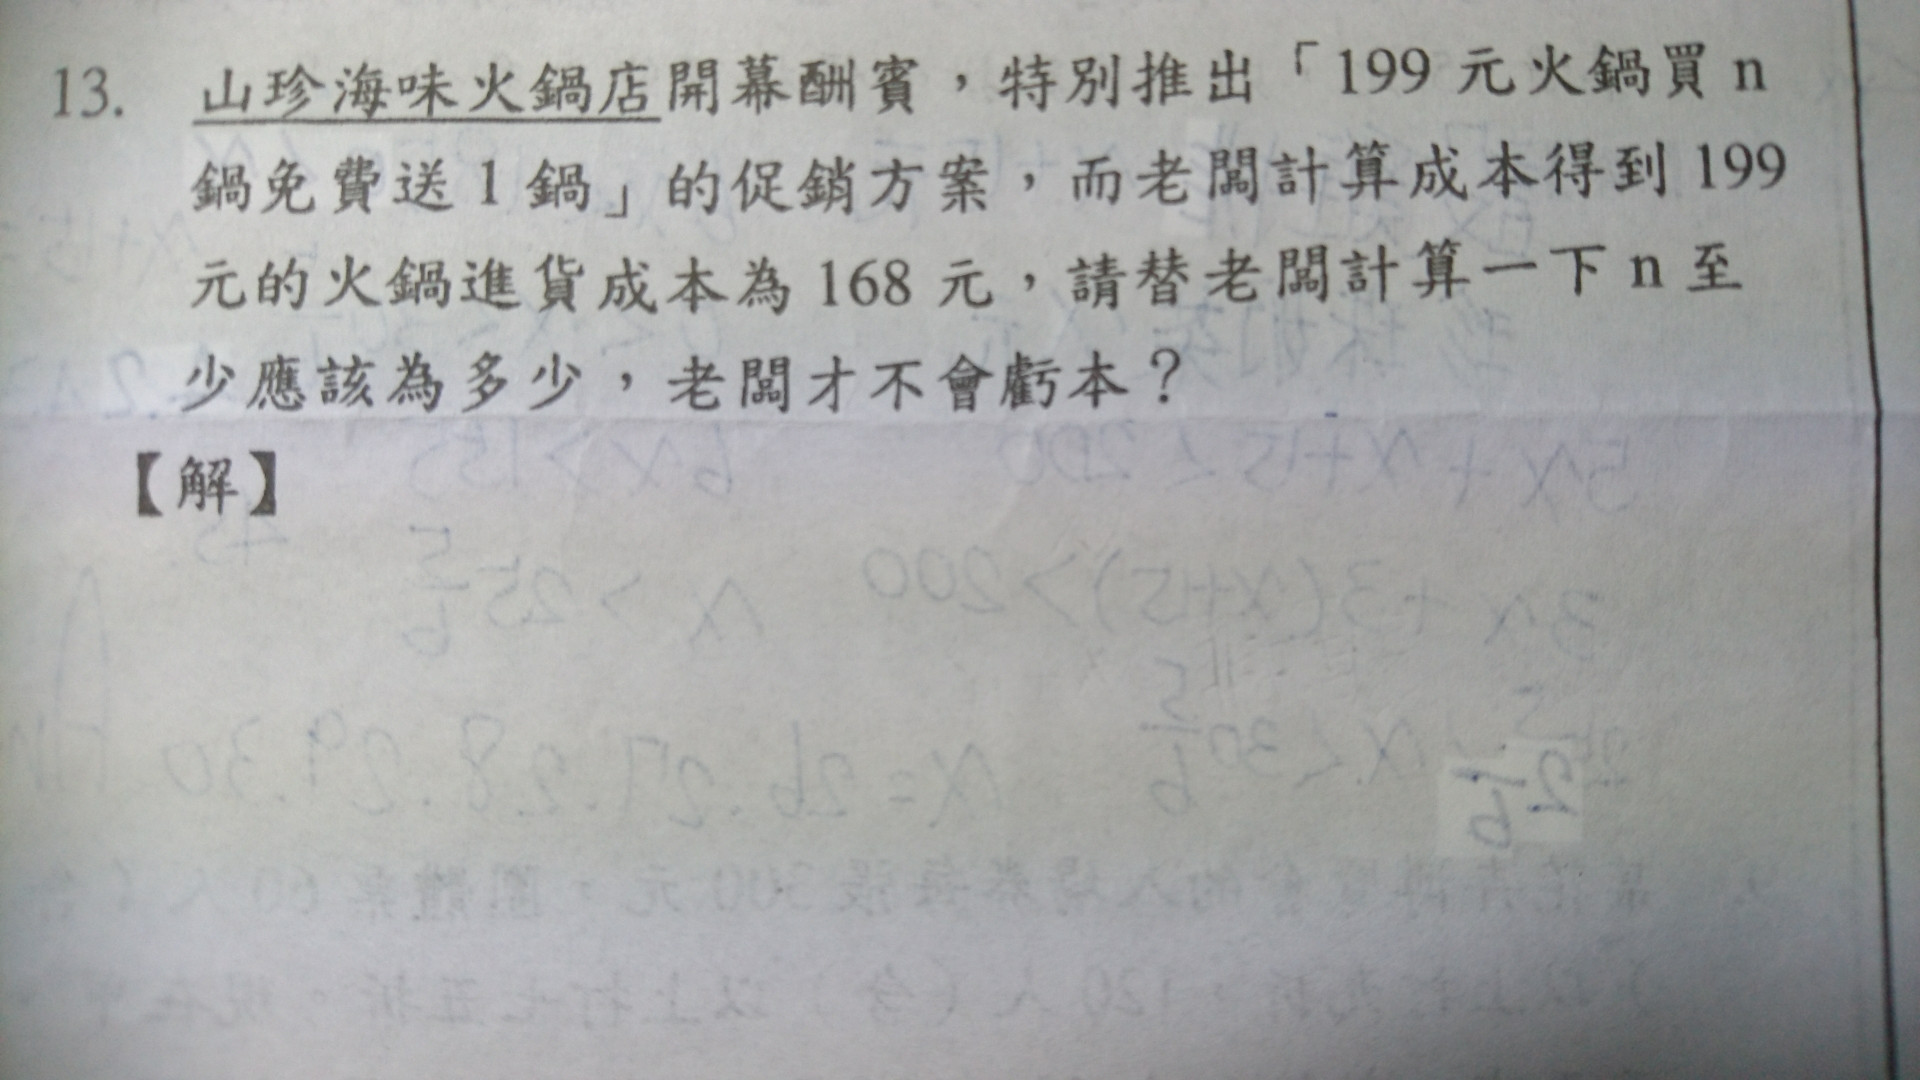 13. 山珍海味火鍋店開幕酬賓，特別推出「199 元火鍋買 n
鍋免費送 1 鍋」的促銷方案，而老闆計算成本得到 199
元的火鍋進貨成本為 168 元，請替老闆計算一下 n 至
少應該為多少，老闆才不會虧本？
【解】